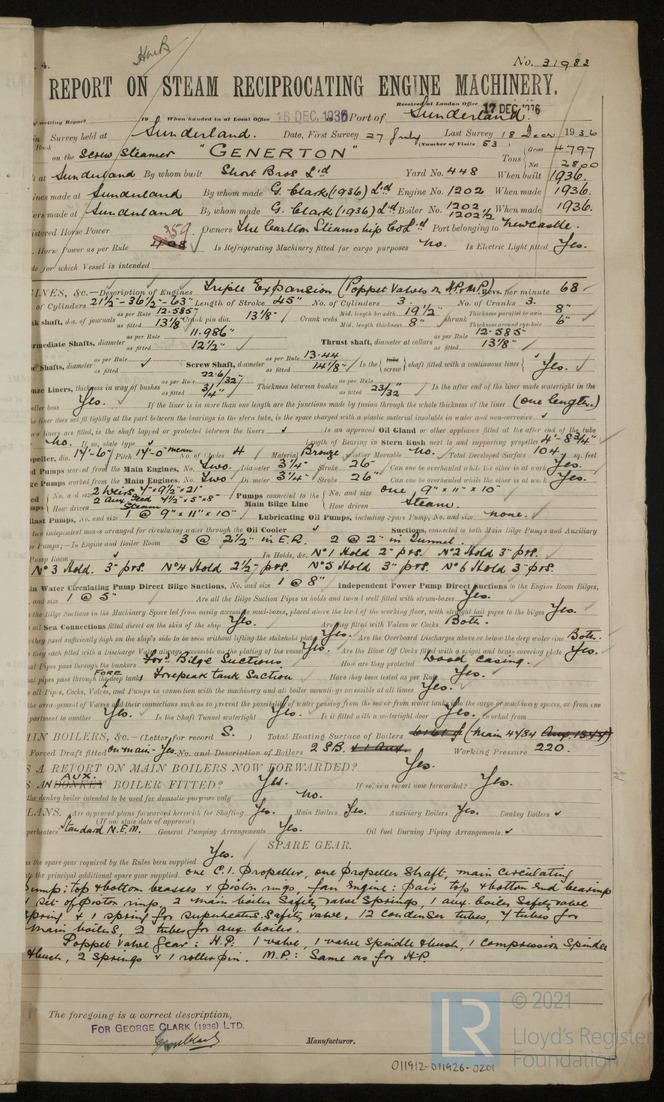 4. No. 31982
REPORT ON STEAM RECIPROCATING ENGINE MACHINERY.
Received at London Office 17 DEC 1936
writing Report 19 When handed in at Local Office 16 DEC. 1936 Port of Sunderland.
Survey held at Sunderland. Date, First Survey 27 July Last Survey 18 Decr 1936
(Number of Visits 53)
on the Screw Steamer "GENERTON" Tons Gross 4797
Net 2800
at Sunderland By whom built Short Bros Ltd Yard No. 448 When built 1936.
made at Sunderland By whom made G. Clark (1936) Ltd Engine No. 1202 When made 1936.
made at Sunderland By whom made G. Clark (1936) Ltd Boiler No. 1202 1202½ When made 1936.
Horse Power Owners The Carlton Steamship Co Ltd Port belonging to Newcastle.
Horse Power as per Rule 359. Is Refrigerating Machinery fitted for cargo purposes No. Is Electric Light fitted Yes.
for which Vessel is intended
INES, &c.—Description of Engines Triple Expansion (Poppet Valves on H.P. & M.P.) Revs. per minute 68
of Cylinders 21½"-36½"-63" Length of Stroke 45" No. of Cylinders 3. No. of Cranks 3.
shaft, dia. of journals as per Rule 12.585" as fitted 13⅛" Crank pin dia. 13⅛" Crank webs Mid. length breadth 19½" Mid. length thickness 8" shrunk Thickness parallel to axis 8" Thickness around eye-hole 6"
mediate Shafts, diameter as per Rule 11.986" as fitted 12½" Thrust shaft, diameter at collars as per Rule 12.585" as fitted 13⅛"
Shafts, diameter as per Rule as fitted Screw Shaft, diameter as per Rule 13.44 as fitted 14⅛" Is the screw shaft fitted with a continuous liner Yes.
Liners, thickness in way of bushes as per Rule as fitted 3/4" Thickness between bushes as per Rule as fitted 23/32 Is the after end of the liner made watertight in the
boss Yes. If the liner is in more than one length are the junctions made by fusion through the whole thickness of the liner (one length.)
liner does not fit tightly at the part between the bearings in the stern tube, is the space charged with a plastic material insoluble in water and non-corrosive
liners are fitted, is the shaft lapped or protected between the liners Is an approved Oil Gland or other appliance fitted at the after end of the tube
No. If so, state type Length of Bearing in Stern Bush next to and supporting propeller 4'-8¾"
peller, dia. 17'-6" Pitch 17'-0" mean No. of Blades 4 Material Bronze whether Moveable No. Total Developed Surface 104 sq. feet
Pumps worked from the Main Engines, No. Two. Diameter 3¼" Stroke 26" Can one be overhauled while the other is at work Yes.
Pumps worked from the Main Engines, No. Two Diameter 3¼" Stroke 26" Can one be overhauled while the other is at work Yes.
No. and size 2 Weirs 7"×9½"×21" 2 Aux. Feed 4½"×5"×8" Pumps connected to the Main Bilge Line No. and size one 9"×11"×10"
How driven Steam How driven Steam.
last Pumps, No. and size 1 @ 9"×11"×10" Lubricating Oil Pumps, including Spare Pump, No. and size none.
independent means arranged for circulating water through the Oil Cooler Suctions, connected to both Main Bilge Pumps and Auxiliary
Pumps;—In Engine and Boiler Room 3 @ 2½" in E.R. 2 @ 2" in Tunnel.
Pump Room In Holds, &c. No 1 Hold 2" prs. No 2 Hold 3" prs.
No 3 Hold. 3" prs. No 4 Hold 2½" prs. No 5 Hold 3" prs. No 6 Hold 3" prs.
Water Circulating Pump Direct Bilge Suctions, No. and size 1 @ 8" Independent Power Pump Direct Suctions to the Engine Room Bilges,
and size 1 @ 5" Are all the Bilge Suction Pipes in holds and tunnel well fitted with strum-boxes Yes.
the Bilge Suctions in the Machinery Space led from easily accessible mud-boxes, placed above the level of the working floor, with straight tail pipes to the bilges Yes.
all Sea Connections fitted direct on the skin of the ship Yes. Are they fitted with Valves or Cocks Both.
they fixed sufficiently high on the ship's side to be seen without lifting the stokehold plates Yes. Are the Overboard Discharges above or below the deep water line Both.
they each fitted with a Discharge Valve always accessible on the plating of the vessel Yes. Are the Blow Off Cocks fitted with a spigot and brass covering plate Yes.
Pipes pass through the bunkers For'd Bilge Suctions How are they protected Wood casing.
pipes pass through FORE deep tanks Forepeak tank Suction Have they been tested as per Rule Yes.
all Pipes, Cocks, Valves, and Pumps in connection with the machinery and all boiler mountings accessible at all times Yes.
the arrangement of Valves and their connections such as to prevent the possibility of water passing from the sea or from water tanks into the cargo or machinery spaces, or from one
partment to another Yes. Is the Shaft Tunnel watertight Yes. Is it fitted with a watertight door Yes. worked from
AIN BOILERS, &c.—(Letter for record S.) Total Heating Surface of Boilers (Main 4484
Forced Draft fitted on main-Yes. No. and Description of Boilers 2 S.B. + 1 Aux. Working Pressure 220.
S A REPORT ON MAIN BOILERS NOW FORWARDED? Yes.
S AN AUX. DONKEY BOILER FITTED? Yes. If so, is a report now forwarded? Yes.
the donkey boiler intended to be used for domestic purposes only No.
LANS. Are approved plans forwarded herewith for Shafting Yes. Main Boilers Yes. Auxiliary Boilers Yes. Donkey Boilers
(If not state date of approval)
perheaters Standard N.E.M. General Pumping Arrangements Yes. Oil fuel Burning Piping Arrangements
SPARE GEAR.
the spare gear required by the Rules been supplied Yes.
the principal additional spare gear supplied. one C.I. Propeller, one Propeller Shaft, main circulating
pump: top & bottom brasses & piston rings, fan engine: pair top & bottom end bearings
1 set of piston rings, 2 main boiler safety valve springs, 1 aux. boiler safety valve
spring & 1 spring for superheater safety valve, 12 condenser tubes, 4 tubes for
main boilers, 2 tubes for aux. boiler.
Poppet Valve Gear: H.P. 1 valve, 1 valve spindle & bush, 1 compression spindle
& bush, 2 springs & 1 roller pin. M.P.: Same as for H.P.
The foregoing is a correct description,
FOR GEORGE CLARK (1936) LTD.
Manufacturer.
© 2021
LR
Lloyd's Register
Foundation
011912-011926-0201